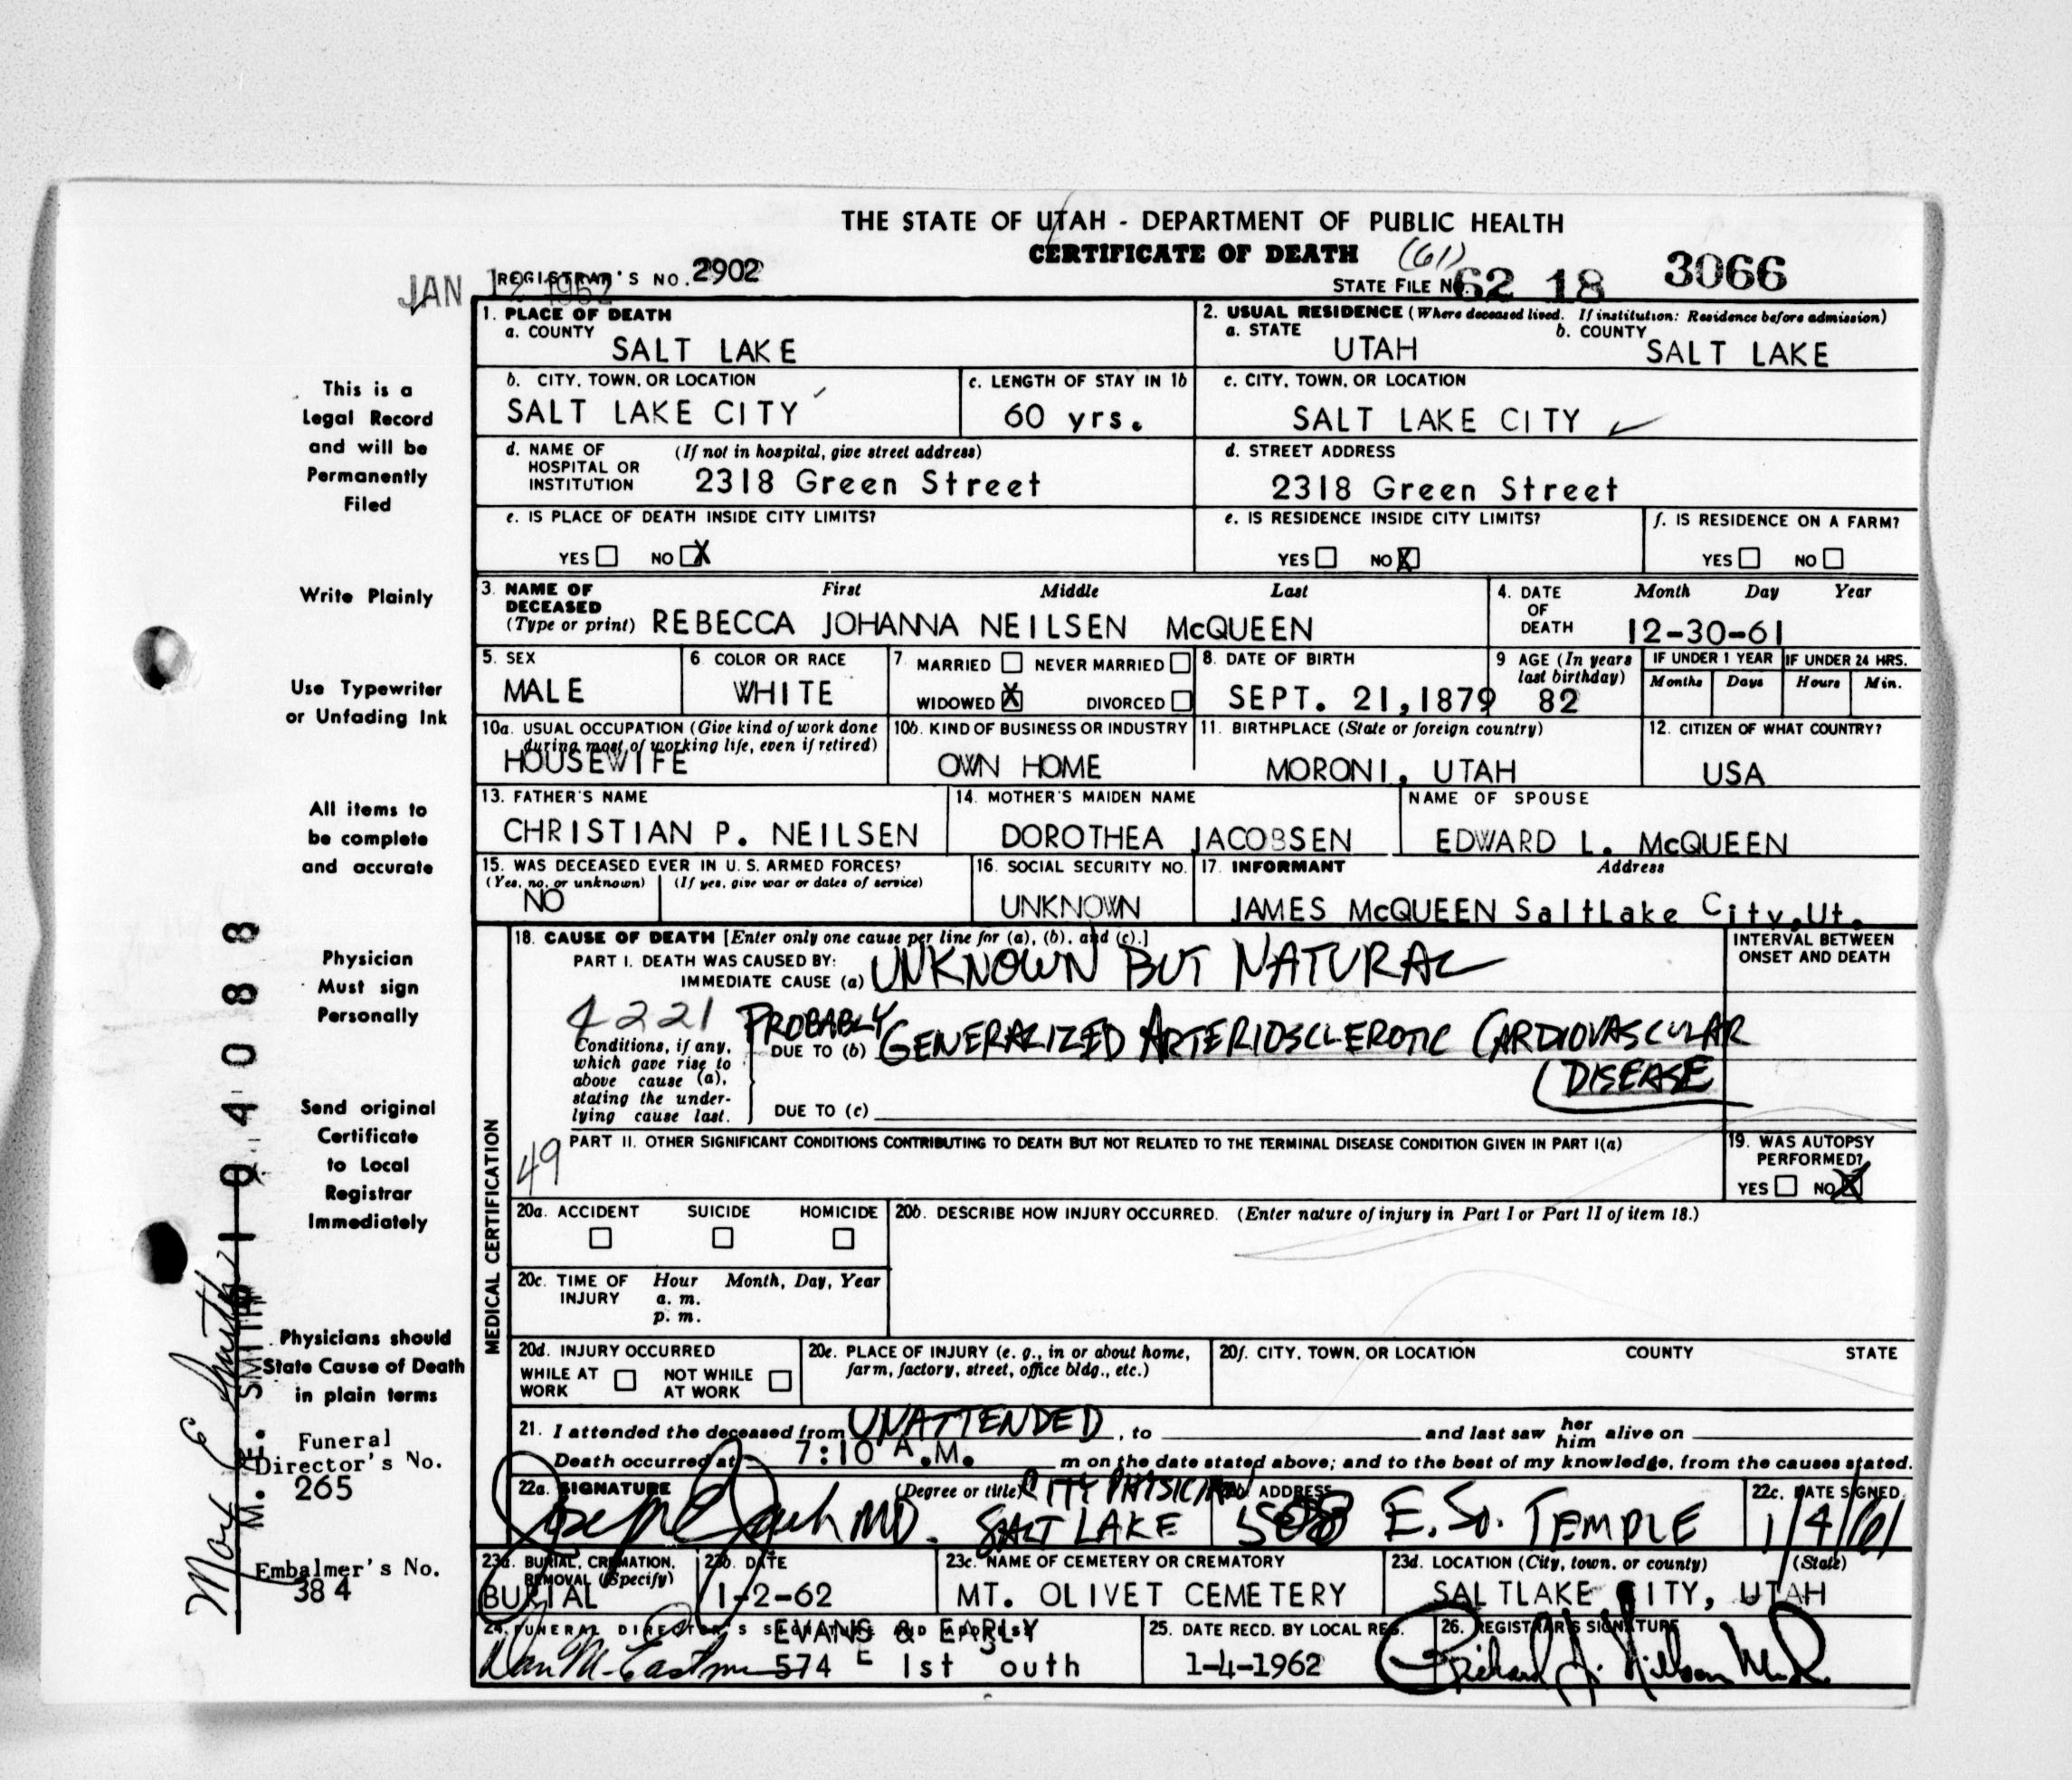 THE STATE OF UTAH - DEPARTMENT OF PUBLIC HEALTH
CERTIFICATE OF DEATH (61)
JAN 12 1962 REGISTRAR'S NO. 2902 STATE FILE NO. 62 18 3066
1. PLACE OF DEATH
a. COUNTY SALT LAKE
2. USUAL RESIDENCE (Where deceased lived. If institution: Residence before admission)
a. STATE UTAH b. COUNTY SALT LAKE
b. CITY, TOWN, OR LOCATION SALT LAKE CITY
c. LENGTH OF STAY IN 1b 60 yrs.
c. CITY, TOWN, OR LOCATION SALT LAKE CITY
d. NAME OF HOSPITAL OR INSTITUTION (If not in hospital, give street address) 2318 Green Street
d. STREET ADDRESS 2318 Green Street
e. IS PLACE OF DEATH INSIDE CITY LIMITS?
YES NO X
e. IS RESIDENCE INSIDE CITY LIMITS?
YES NO X
f. IS RESIDENCE ON A FARM?
YES NO
3. NAME OF DECEASED (Type or print) First Middle Last
REBECCA JOHANNA NEILSEN McQUEEN
4. DATE OF DEATH Month Day Year
12-30-61
5. SEX MALE
6. COLOR OR RACE WHITE
7. MARRIED NEVER MARRIED
WIDOWED X DIVORCED
8. DATE OF BIRTH SEPT. 21,1879
9 AGE (In years last birthday) 82
IF UNDER 1 YEAR Months Days
IF UNDER 24 HRS. Hours Min.
10a. USUAL OCCUPATION (Give kind of work done during most of working life, even if retired)
HOUSEWIFE
10b. KIND OF BUSINESS OR INDUSTRY
OWN HOME
11. BIRTHPLACE (State or foreign country)
MORONI, UTAH
12. CITIZEN OF WHAT COUNTRY?
USA
13. FATHER'S NAME
CHRISTIAN P. NEILSEN
14. MOTHER'S MAIDEN NAME
DOROTHEA JACOBSEN
NAME OF SPOUSE
EDWARD L. McQUEEN
15. WAS DECEASED EVER IN U.S. ARMED FORCES?
(Yes, no, or unknown) (If yes, give war or dates of service)
NO
16. SOCIAL SECURITY NO.
UNKNOWN
17. INFORMANT Address
JAMES McQUEEN SaltLake City,Ut.
MEDICAL CERTIFICATION
18. CAUSE OF DEATH [Enter only one cause per line for (a), (b), and (c).]
PART I. DEATH WAS CAUSED BY:
IMMEDIATE CAUSE (a) UNKNOWN BUT NATURAL
INTERVAL BETWEEN ONSET AND DEATH
4221 PROBABLY
Conditions, if any, which gave rise to above cause (a), stating the underlying cause last.
DUE TO (b) GENERALIZED ARTERIOSCLEROTIC CARDIOVASCULAR
DISEASE
DUE TO (c)
49
PART II. OTHER SIGNIFICANT CONDITIONS CONTRIBUTING TO DEATH BUT NOT RELATED TO THE TERMINAL DISEASE CONDITION GIVEN IN PART I(a)
19. WAS AUTOPSY PERFORMED?
YES NO X
20a. ACCIDENT SUICIDE HOMICIDE
20b. DESCRIBE HOW INJURY OCCURRED. (Enter nature of injury in Part I or Part II of item 18.)
20c. TIME OF INJURY Hour Month, Day, Year
a. m.
p. m.
20d. INJURY OCCURRED
WHILE AT WORK NOT WHILE AT WORK
20e. PLACE OF INJURY (e. g., in or about home, farm, factory, street, office bldg., etc.)
20f. CITY, TOWN, OR LOCATION COUNTY STATE
21. I attended the deceased from UNATTENDED, to and last saw her him alive on
Death occurred at 7:10 A.M. m on the date stated above; and to the best of my knowledge, from the causes stated.
22a. SIGNATURE (Degree or title) CITY PHYSICIAN
MD. SALT LAKE
ADDRESS 508 E. So. TEMPLE
22c. DATE SIGNED
1/4/61
23a. BURIAL, CREMATION, REMOVAL (Specify)
BURIAL
23b. DATE
1-2-62
23c. NAME OF CEMETERY OR CREMATORY
MT. OLIVET CEMETERY
23d. LOCATION (City, town, or county) (State)
SALTLAKE CITY, UTAH
24. FUNERAL DIRECTOR'S SIGNATURE AND ADDRESS
EVANS & EARLY
574 E 1st South
25. DATE RECD. BY LOCAL REG.
1-4-1962
26. REGISTRAR'S SIGNATURE
This is a
Legal Record
and will be
Permanently
Filed
Write Plainly
Use Typewriter
or Unfading Ink
All items to
be complete
and accurate
Physician
Must sign
Personally
Send original
Certificate
to Local
Registrar
Immediately
Physicians should
State Cause of Death
in plain terms
Funeral
Director's No.
265
Embalmer's No.
384
M. E. SMITH
194088